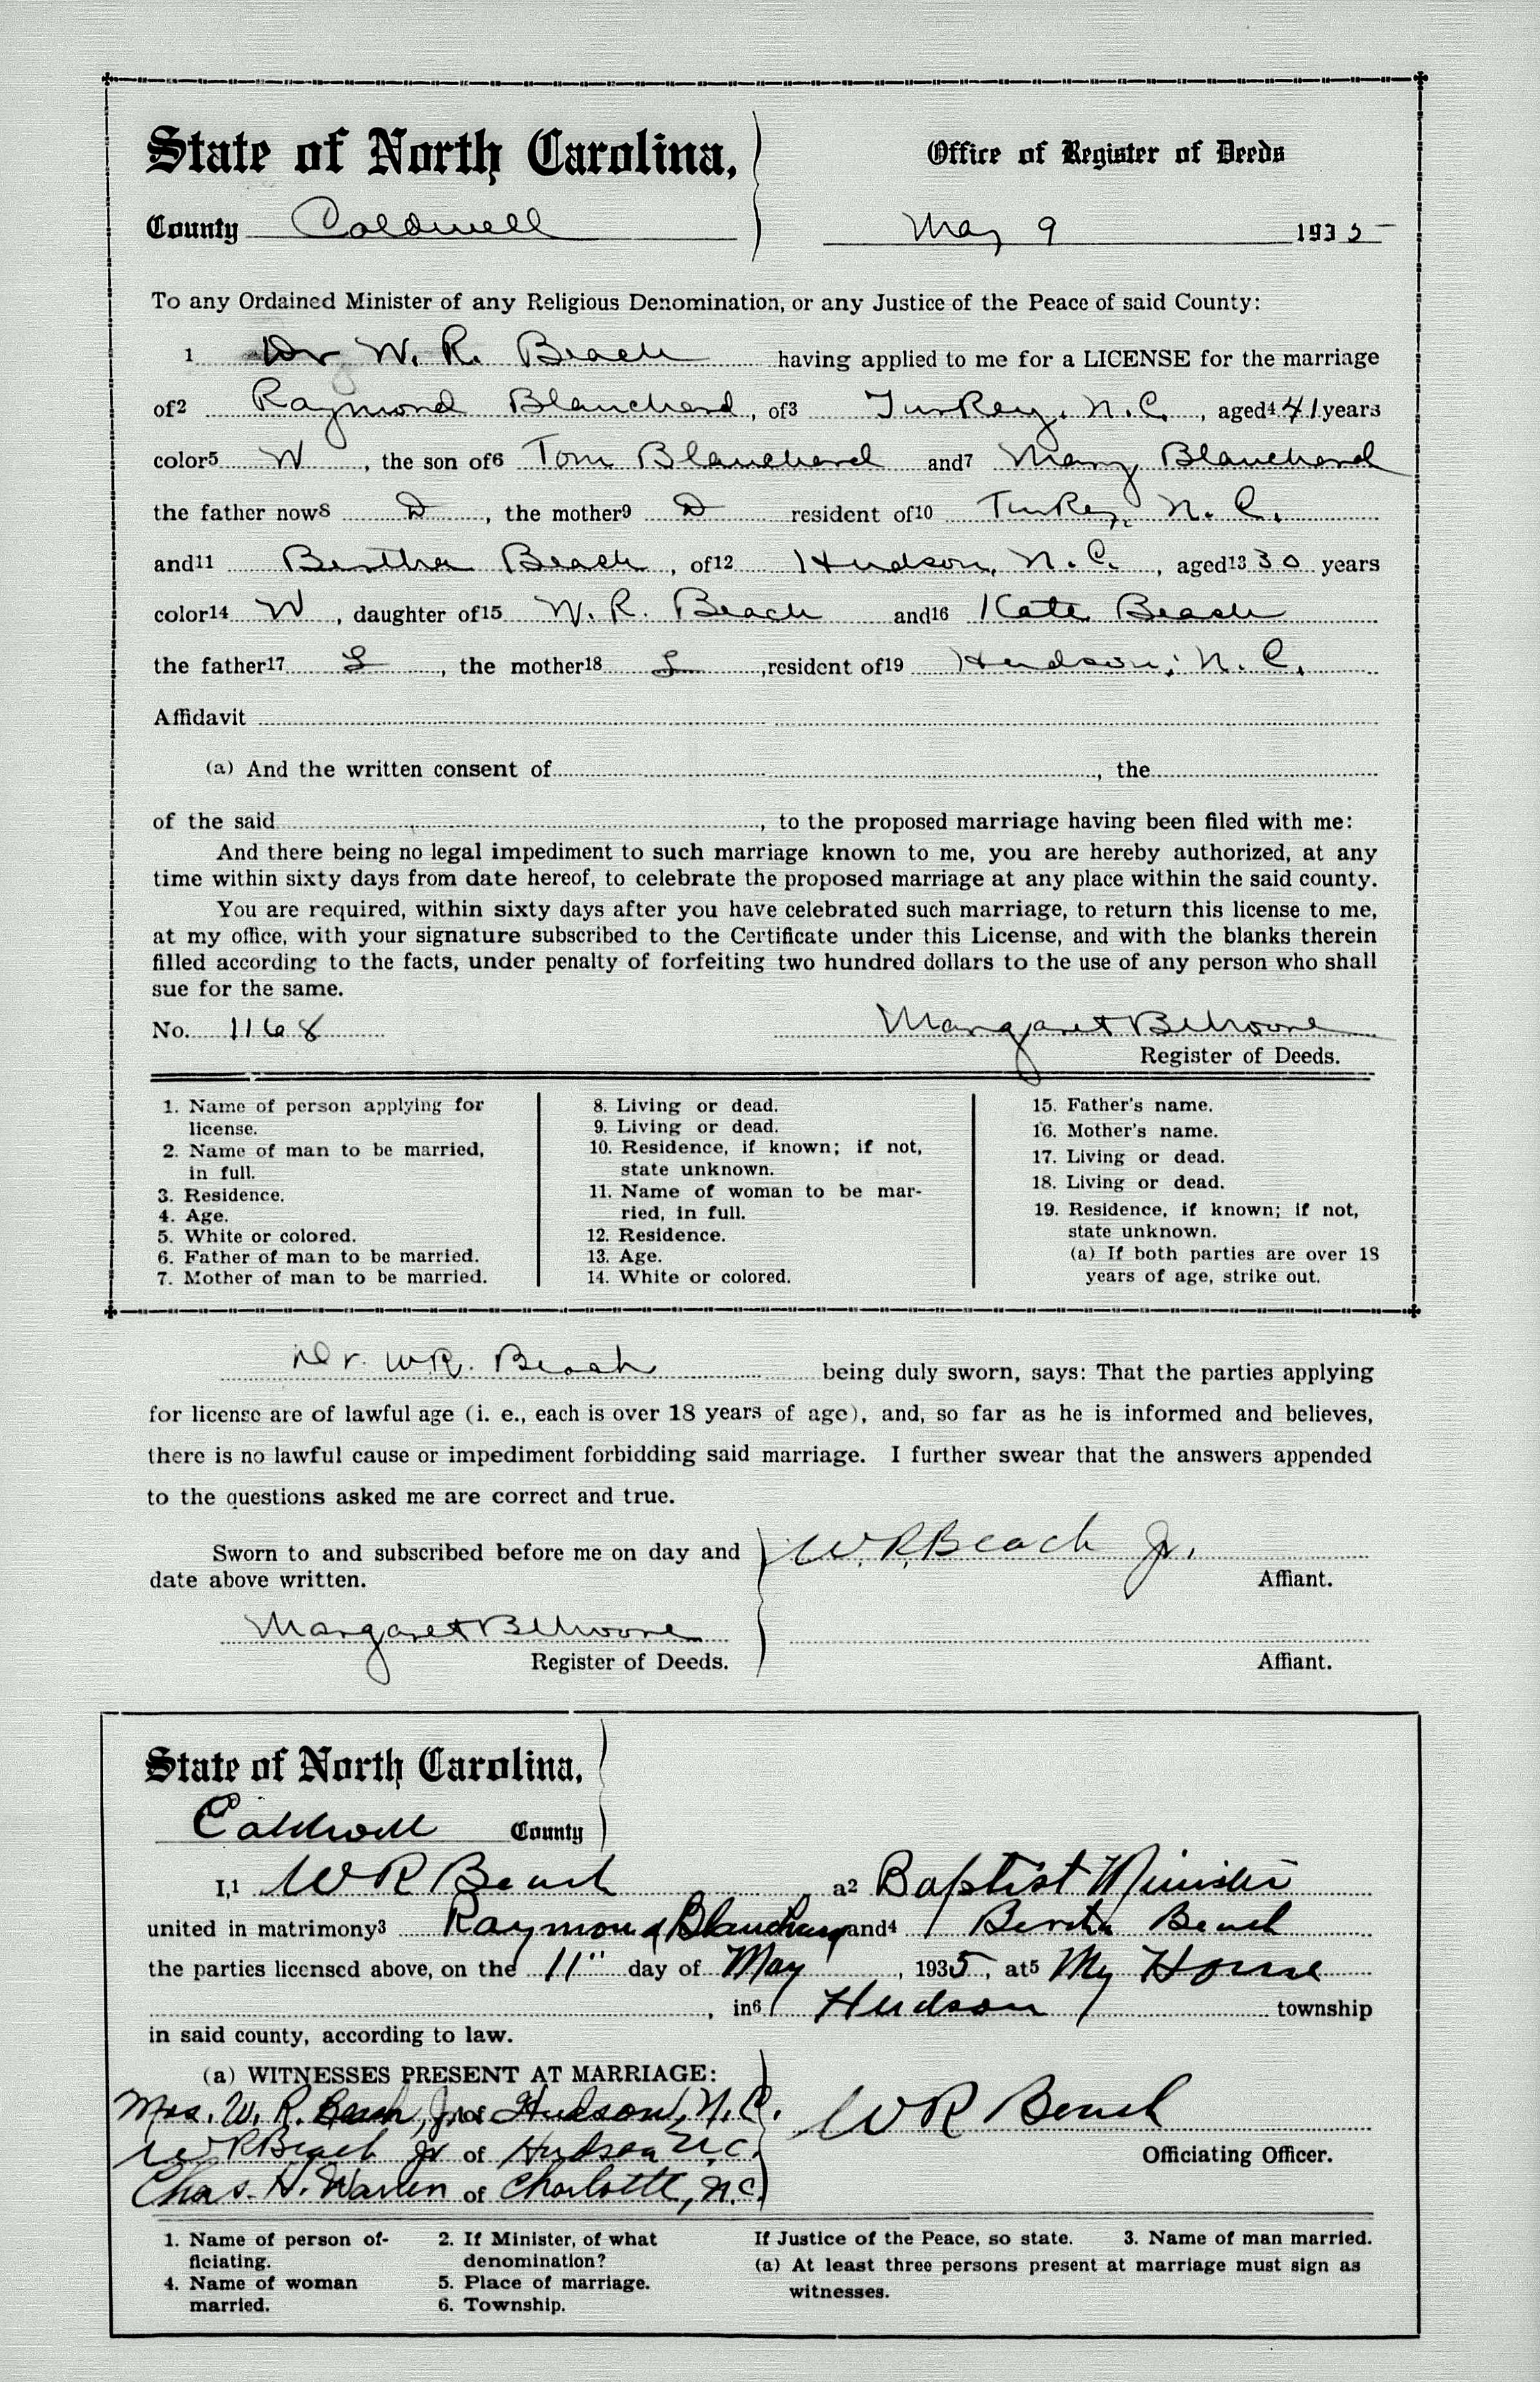 State of North Carolina,
Office of Register of Deeds
County Caldwell
May 9 1935
To any Ordained Minister of any Religious Denomination, or any Justice of the Peace of said County:
1 Dr W. R. Beach having applied to me for a LICENSE for the marriage
of2 Raymond Blanchard, of3 Turkey, N.C., aged4 41 years
color5 W, the son of6 Tom Blanchard and7 Mary Blanchard
the father now8 D, the mother9 D resident of10 Turkey, N.C.
and11 Bertha Beach, of12 Hudson, N.C., aged13 30 years
color14 W, daughter of15 W. R. Beach and16 Kate Beach
the father17 L, the mother18 L, resident of19 Hudson, N.C.
Affidavit
(a) And the written consent of, the
of the said, to the proposed marriage having been filed with me:
And there being no legal impediment to such marriage known to me, you are hereby authorized, at any
time within sixty days from date hereof, to celebrate the proposed marriage at any place within the said county.
You are required, within sixty days after you have celebrated such marriage, to return this license to me,
at my office, with your signature subscribed to the Certificate under this License, and with the blanks therein
filled according to the facts, under penalty of forfeiting two hundred dollars to the use of any person who shall
sue for the same.
No. 1168 Margaret
Register of Deeds.
1. Name of person applying for
license.
2. Name of man to be married,
in full.
3. Residence.
4. Age.
5. White or colored.
6. Father of man to be married.
7. Mother of man to be married.
8. Living or dead.
9. Living or dead.
10. Residence, if known; if not,
state unknown.
11. Name of woman to be mar-
ried, in full.
12. Residence.
13. Age.
14. White or colored.
15. Father's name.
16. Mother's name.
17. Living or dead.
18. Living or dead.
19. Residence, if known; if not,
state unknown.
(a) If both parties are over 18
years of age, strike out.
Dr. W.R. Beach being duly sworn, says: That the parties applying
for license are of lawful age (i. e., each is over 18 years of age), and, so far as he is informed and believes,
there is no lawful cause or impediment forbidding said marriage. I further swear that the answers appended
to the questions asked me are correct and true.
Sworn to and subscribed before me on day and
date above written.
W. R. Beach Jr.
Affiant.
Margaret
Register of Deeds.
Affiant.
State of North Carolina,
Caldwell County
I,1 W R Beach a2 Baptist Minister
united in matrimony3 Raymond Blanchard and4 Bertha Beach
the parties licensed above, on the 11" day of May, 1935, at5 My Home
, in6 Hudson township
in said county, according to law.
(a) WITNESSES PRESENT AT MARRIAGE:
Mrs. W. R. Beach, Jr. of Hudson, N.C.
W R Beach Jr of Hudson N.C.
Chas. H. Warren of Charlotte, N.C.
W R Beach
Officiating Officer.
1. Name of person of-
ficiating.
4. Name of woman
married.
2. If Minister, of what
denomination?
5. Place of marriage.
6. Township.
If Justice of the Peace, so state. 3. Name of man married.
(a) At least three persons present at marriage must sign as
witnesses.